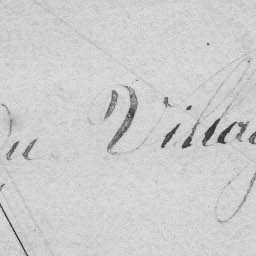 Du Villag